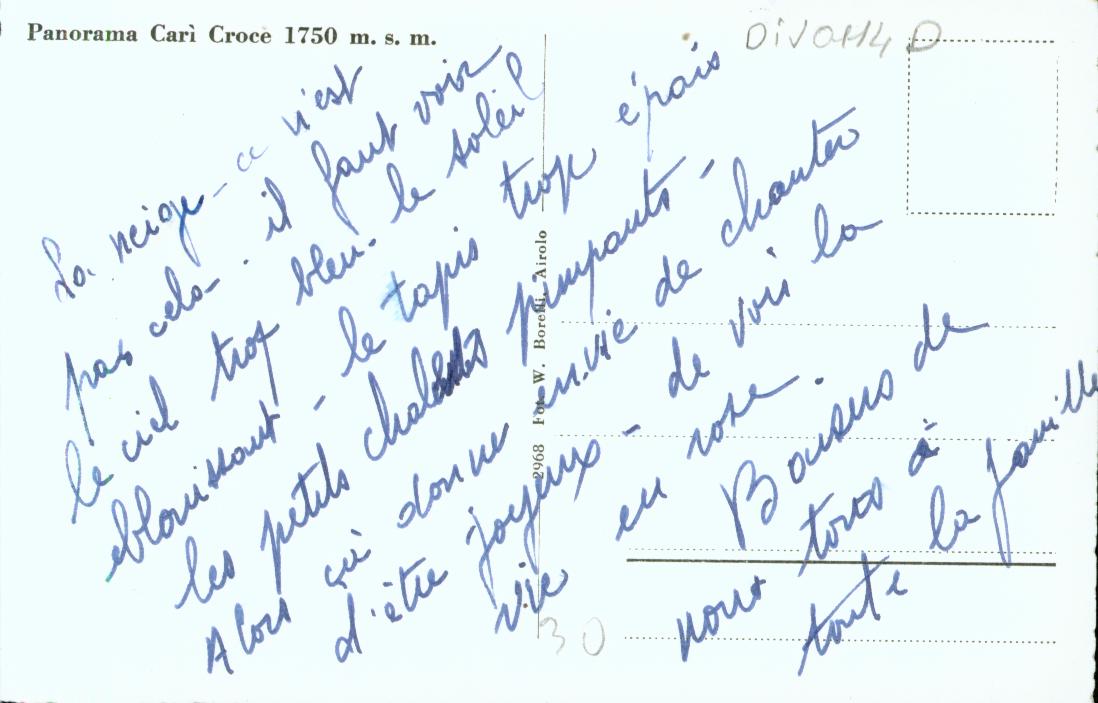 Panorama Carì Croce 1750 m. s. m.
DIVOH4D
La neige - ce n'est
pas cela. il faut voir
le ciel trop bleu. le soleil
eblouissant - le tapis trop épais
les petits chalets pimpants -
Alors çà donne envie de chanter
d'être joyeux - de voir la
vie en rose.
Bousers de
nous tous à
toute la famille
2968 Fot. W. Borelli, Airolo
30